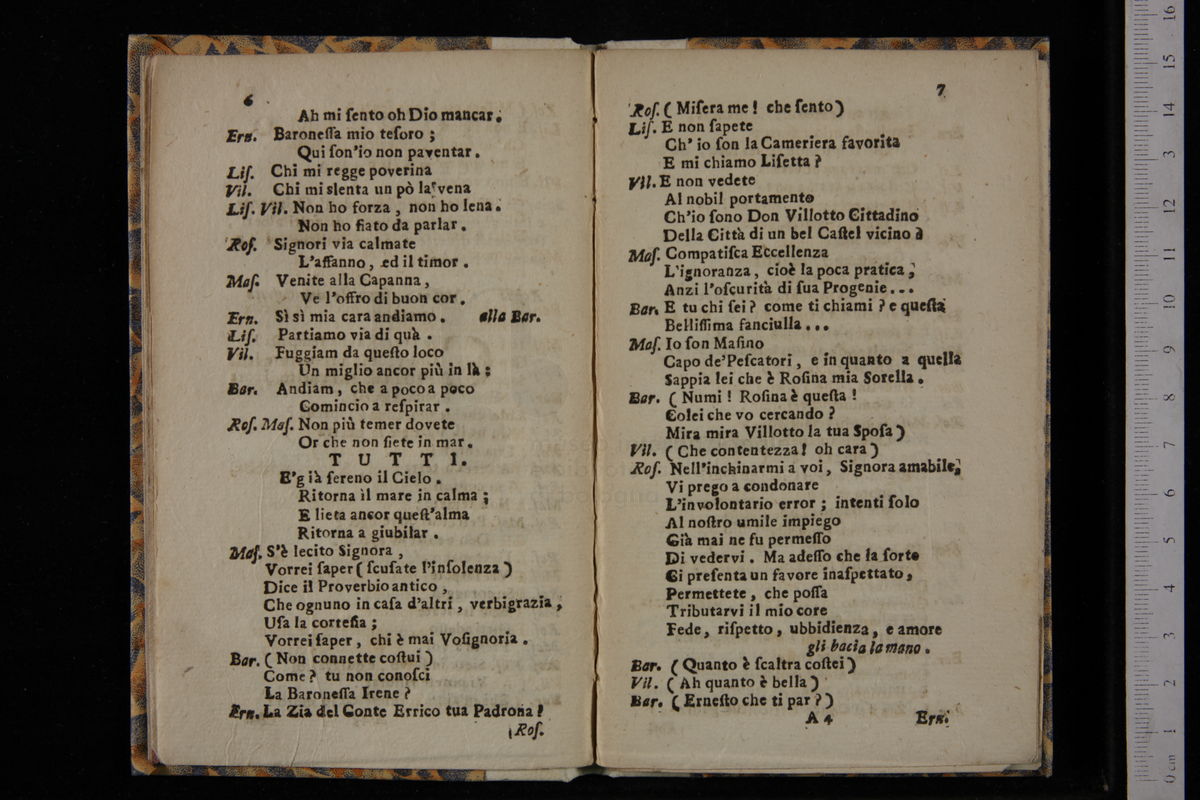 6
Ah mi ſento oh Dio mancar.
Ern. Baroneſſa mio teſoro ;
Qui ſon'io non paventar .
Liſ. Chi mi regge poverina
Vil. Chi mi slenta un pò la vena
Liſ. Vil. Non ho forza , non ho lena .
Non ho fiato da parlar .
Roſ. Signori via calmate
L'affanno , ed il timor .
Maſ. Venite alla Capanna ,
Ve l'offro di buon cor .
Ern. Sì sì mia cara andiamo . alla Bar.
Liſ. Partiamo via di quà .
Vil. Fuggiam da queſto loco
Un miglio ancor più in là ;
Bar. Andiam , che a poco a poco
Comincio a reſpirar .
Roſ. Maſ. Non più temer dovete
Or che non ſiete in mar .
T U T T I.
E'già ſereno il Cielo .
Ritorna il mare in calma ;
E lieta ancor queſt'alma
Ritorna a giubilar .
Maſ. S'è lecito Signora ,
Vorrei ſaper ( ſcuſate l'inſolenza )
Dice il Proverbio antico ,
Che ognuno in caſa d'altri , verbigrazia ,
Uſa la corteſia ;
Vorrei ſaper , chi è mai Voſignoria .
Bar. ( Non connette coſtui )
Come ? tu non conoſci
La Baroneſſa Irene ?
Ern. La Zia del Conte Errico tua Padrona !
Roſ.
7
Roſ. ( Miſera me ! che ſento )
Liſ. E non ſapete
Ch' io ſon la Cameriera favorita
E mi chiamo Liſetta ?
Vil. E non vedete
Al nobil portamento
Ch'io ſono Don Villotto Cittadino
Della Città di un bel Caſtel vicino à
Maſ. Compatiſca Eccellenza
L'ignoranza , cioè la poca pratica ;
Anzi l'oſcurità di ſua Progenie...
Bar. E tu chi ſei ? come ti chiami ? e queſta
Belliſſima fanciulla ...
Maſ. Io ſon Maſino
Capo de'Peſcatori , e in quanto a quella
Sappia lei che è Roſina mia Sorella .
Bar. ( Numi ! Roſina è queſta !
Colei che vo cercando ?
Mira mira Villotto la tua Spoſa )
Vil. ( Che contentezza ! oh cara )
Roſ. Nell'inchinarmi a voi , Signora amabile,
Vi prego a condonare
L'involontario error ; intenti ſolo
Al noſtro umile impiego
Già mai ne fu permeſſo
Di vedervi . Ma adeſſo che la ſorte
Ci preſenta un favore inaſpettato ,
Permettete , che poſſa
Tributarvi il mio core
Fede, riſpetto , ubbidienza , e amore
gli bacia la mano .
Bar. ( Quanto è ſcaltra coſtei )
Vil. ( Ah quanto è bella )
Bar. ( Erneſto che ti par ? )
A 4 Ern.
0 cm 1 2 3 4 5 6 7 8 9 10 11 12 3 14 15 16